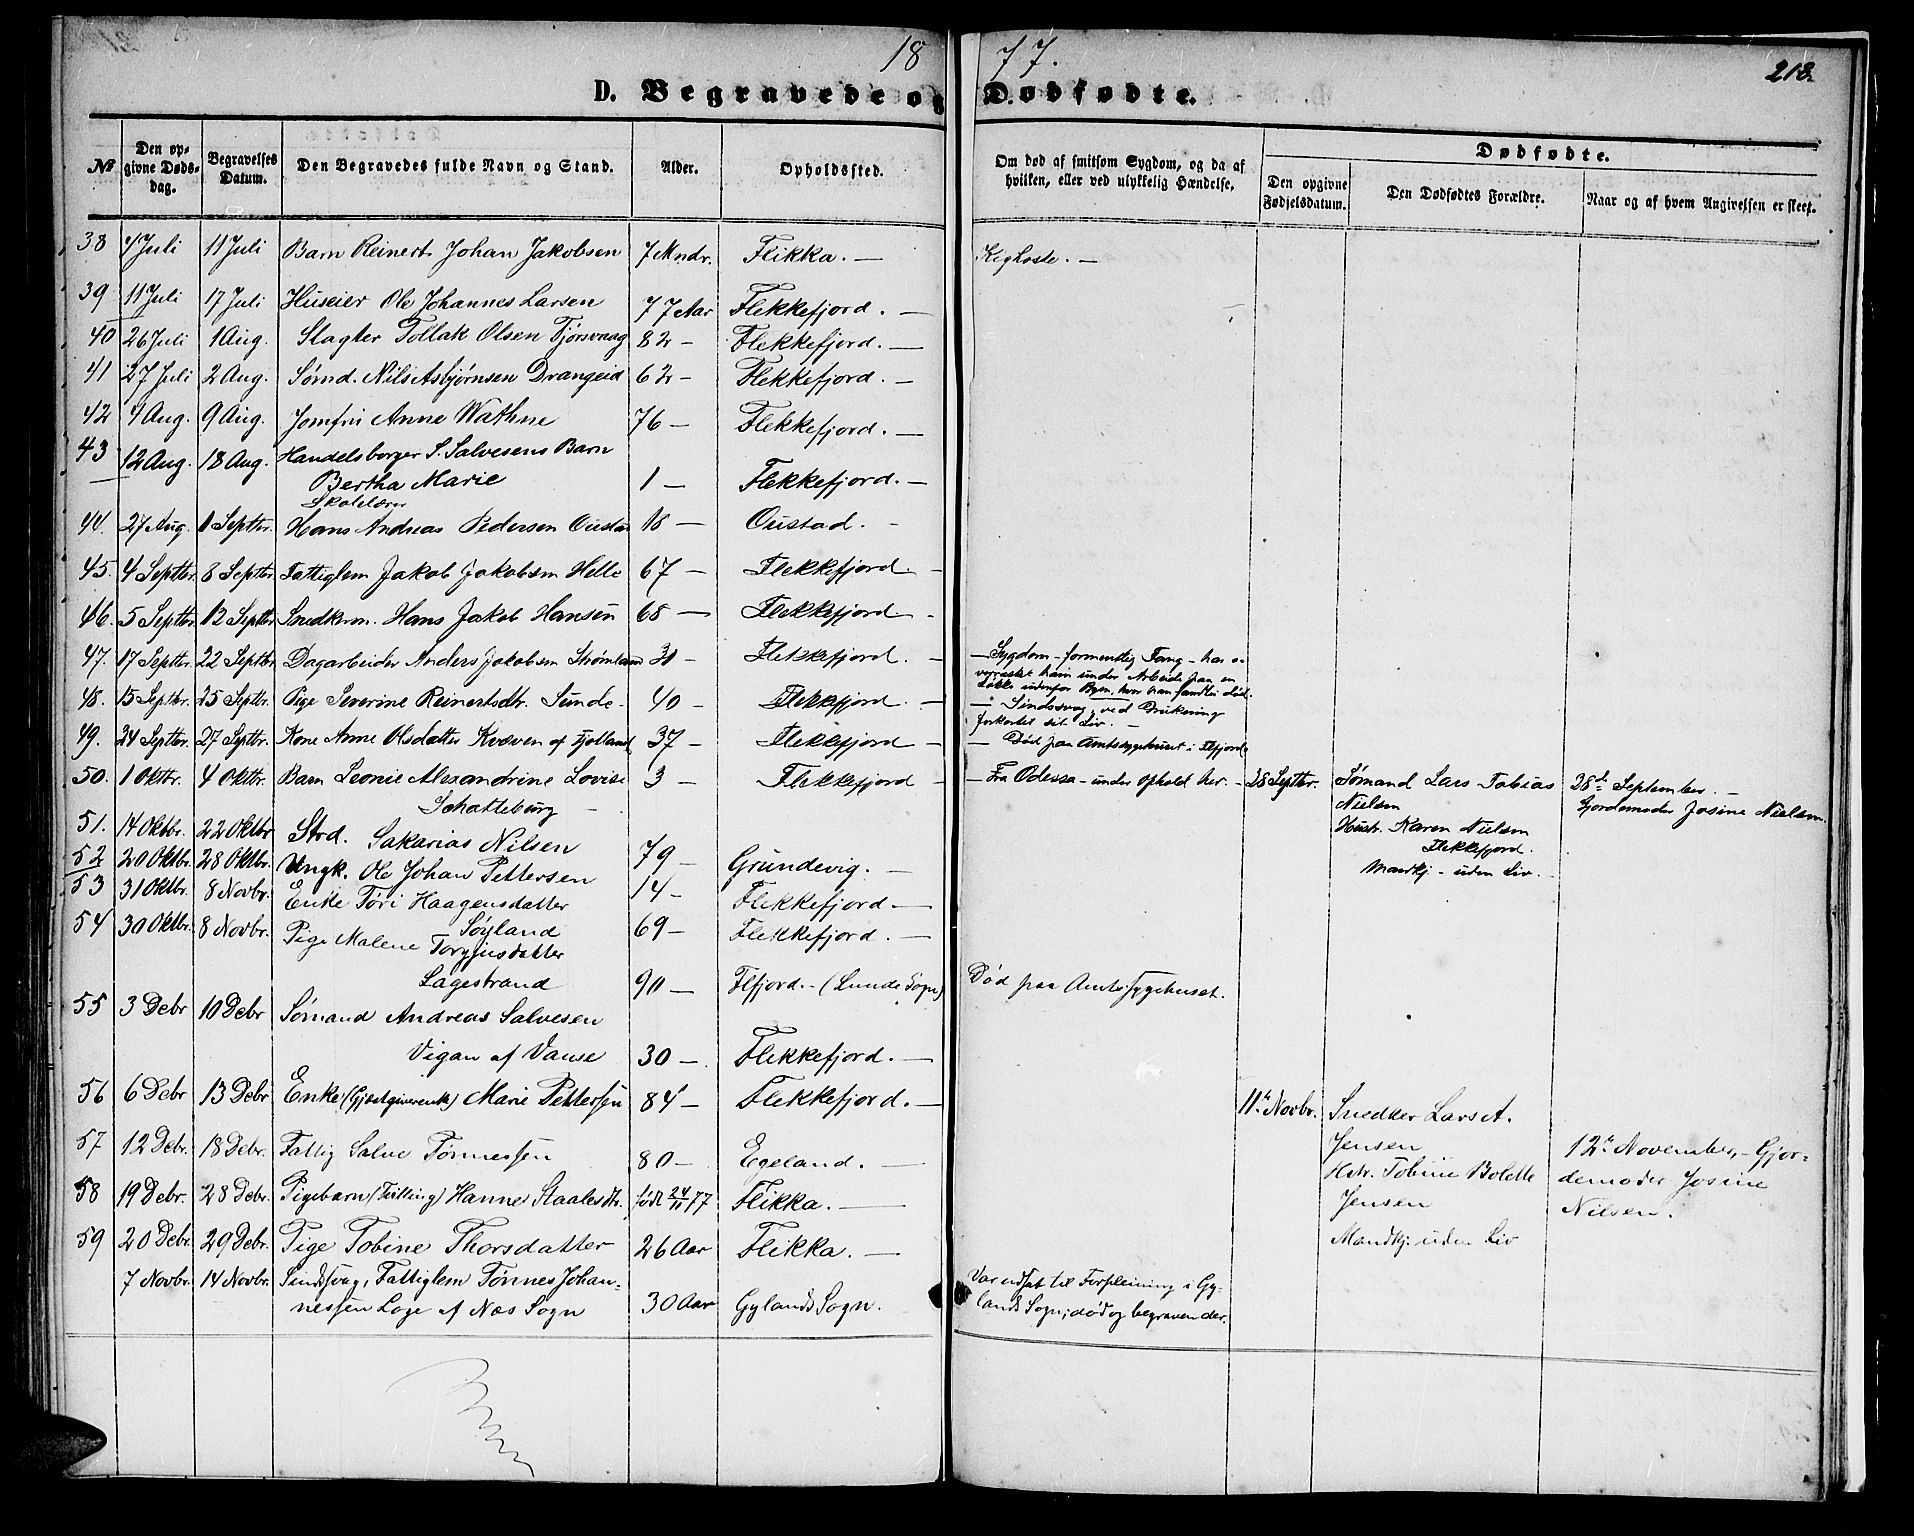 1877.
213.
D. Begravede og Dødfødte.
№ Den opgivne Dødsdag. Begravelses Datum. Den Begravedes fulde Navn og Stand. Alder. Opholdssted. Om død af smitsom Sygdom, og da af hvilken, eller ved ulykkelig Hændelse. Dødfødte. Den opgivne Fødselsdatum. Den Dødfødtes Forældre. Naar og af hvem Angivelsen er skeet.
38 7 Juli 11 Juli Barn Reinert Johan Jakobsen 7 Mndr. Flikka. — Kighoste. —
39 11 Juli 17 Juli Huseier Ole Johannes Larsen 77 Aar Flekkefjord. —
40 26 Juli 1 Aug. Slagter Tollak Olsen Tjørsvaag 82 — Flekkefjord. —
41 27 Juli 2 Aug. Sømd. Nils Asbjørnsen Drangeid 62 — Flekkefjord. —
42 4 Aug. 9 Aug. Jomfru Anne Wathne 76 — Flekkefjord. —
43 12 Aug. 18 Aug. Handelsborger S. Salvesens Barn
Bertha Marie 1 — Flekkefjord. —
Skolelærer
44. 27 Aug. 1 Septbr. Hans Andreas Pedersen Oustad 18 — Oustad. —
45. 4 Septbr. 8 Septbr. Fattiglem Jakob Jakobsen Helle 67 — Flekkefjord. —
46. 5 Septbr. 12 Septbr. Snedkerm. Hans Jakob Hansen 68 — Flekkefjord. —
47. 17 Septbr. 22 Septbr. Dagarbeider Anders Jakobsen Strømland 31 — Flekkefjord. — — Sygdom — formentlig Tang — har o-
verrasket ham under Arbeide paa en
Løkke udenfor Byen, hvor han fandtes død.
48. 15 Septbr. 25 Septbr. Pige Severine Reinertsdtr. Sunde. 40 — Flekkefjord. — — i Sindssvag, ved Drukning
forkortet sit Liv. —
49. 24 Septbr. 27 Septbr. Kone Anne Olsdatter Kvæven af Fjotland 37 — Flekkefjord — — Død paa Amtssygehuset i Flfjord.
50. 1 Oktbr. 4 Oktbr. Barn Leonie Alexandrine Lovise 3 — Flekkefjord — — Fra Odessa — under Ophold her. — 28 Septbr. Sømand Lars Tobias 28de September. —
Schatteburg — Nielsen Gjordemoder Josine Nielsen.
51. 14 Oktbr. 22 Oktbr. Strd. Sakarias Nilsen 79 — Grundevig. — Hustr. Karen Nielsen
Flekkefjord.
52 20 Oktbr. 28 Oktbr. Ungk. Ole Johan Pettersen 14 — Flekkefjord — Mandkj. — uden Liv.
53 31 Oktbr. 8 Novbr. Enke Tøri Haagensdatter
Søyland 69 — Flekkefjord. —
54 30 Oktbr. 8 Novbr. Pige Malene Torgjusdatter
Lagestrand 90 — Flfjord. — (Lunde Sogn) Død paa Amtssygehuset.
55 3 Debr 10 Debr Sømand Andreas Salvesen
Vigan af Vanse 30 — Flekkefjord. —
56 6 Debr 13 Debr Enke (Gjæstgiverenke) Marie Pettersen 84 — Flekkefjord. — 11te Novbr. Snedker Lars A.
57 12 Debr. 18 Debr. Fattig Salve Tønnessen 80 — Egeland. — Jensen 12te November, — Gjor-
Hstr. Tobine Bolette demoder Josine
58 19 Debr. 28 Debr. Pigebarn (Tvilling) Hanne Staalesdtr. født 24/11 77 Flikka. — Jensen Nilsen.
59 20 Debr. 29 Debr. Pige Tobine Thorsdatter 26 Aar Flikka. — Mandkj. uden Liv
7 Novbr. 14 Novbr. Sindssvag, Fattiglem Tønnes Johan-
nessen Loge af Næs Sogn 30 Aar Gylands Sogn. Var udsat til Forpleining i Gy-
lands Sogn; død og begraven der.